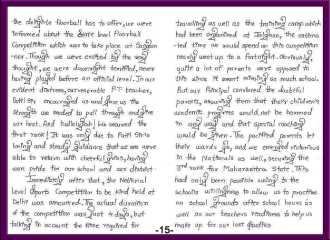 the delights Floorball has to offer, we were
informed about the State level Floorball
Competition which was to take place at
ner. Though we were excited by the very
thought, we were downright terrified, never
having played before on official level. In our
evident distress, our venerable P.T. teacher,
Patil Sir encouraged us and gave us the
strength we needed to pull through and give
our best. And hallelujah! We secured the
first rank! It was only due to Patil Sir's
loving and steady guidance that we were
able to return with cheerful faces, having
won pride for our school and our district.
Immediately after that, the National
level Sports Competition to be held at
Delhi was announced. The actual duration
of the competition was just 4 days, but
taking in account the time required for
travelling as well as the training camp which
had been organised at Jalgaon, the estima
-ted time we would spend on this competition
nearly went up to a fortnight. Obviously,
quite a lot of parents were opposed to
this since it meant missing so much school.
But our Principal convinced the doubtful
parents, assuring them that their children's
academic progress would not be harmed
in any way and that special coaching
would be given. The pacified parents let
their wards go, and we emerged victorious
in the Nationals as well, securing the
3rd rank for Maharashtra State. This
had only been possible owing to the
school's willingness to allow us to practise
on school grounds after school hours as
well as our teachers readiness to help us
make up for our lost studies.
-15-